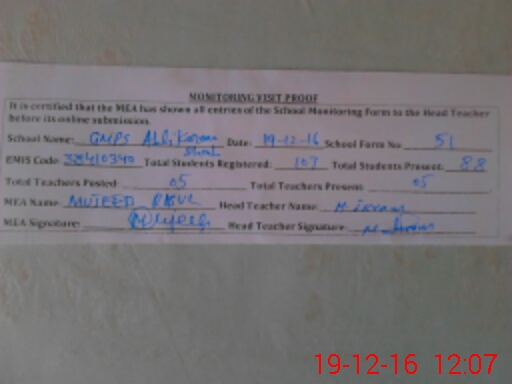 MONITORING VISIT PROOF
It is certified that the MEA has shown all entries of the School Monitoring Form to the Head Teacher
before its online submission.
School Name: GMPS Date: 19-12-16 School Form No: 51
EMIS Code: Total Students Registered: 107 Total Students Present: 88
Total Teachers Posted: 05 Total Teachers Present: 05
MEA Name: MUJEEB Head Teacher Name: M. Ikram
MEA Signature: Mujeeb Head Teacher Signature:
19-12-16 12:07